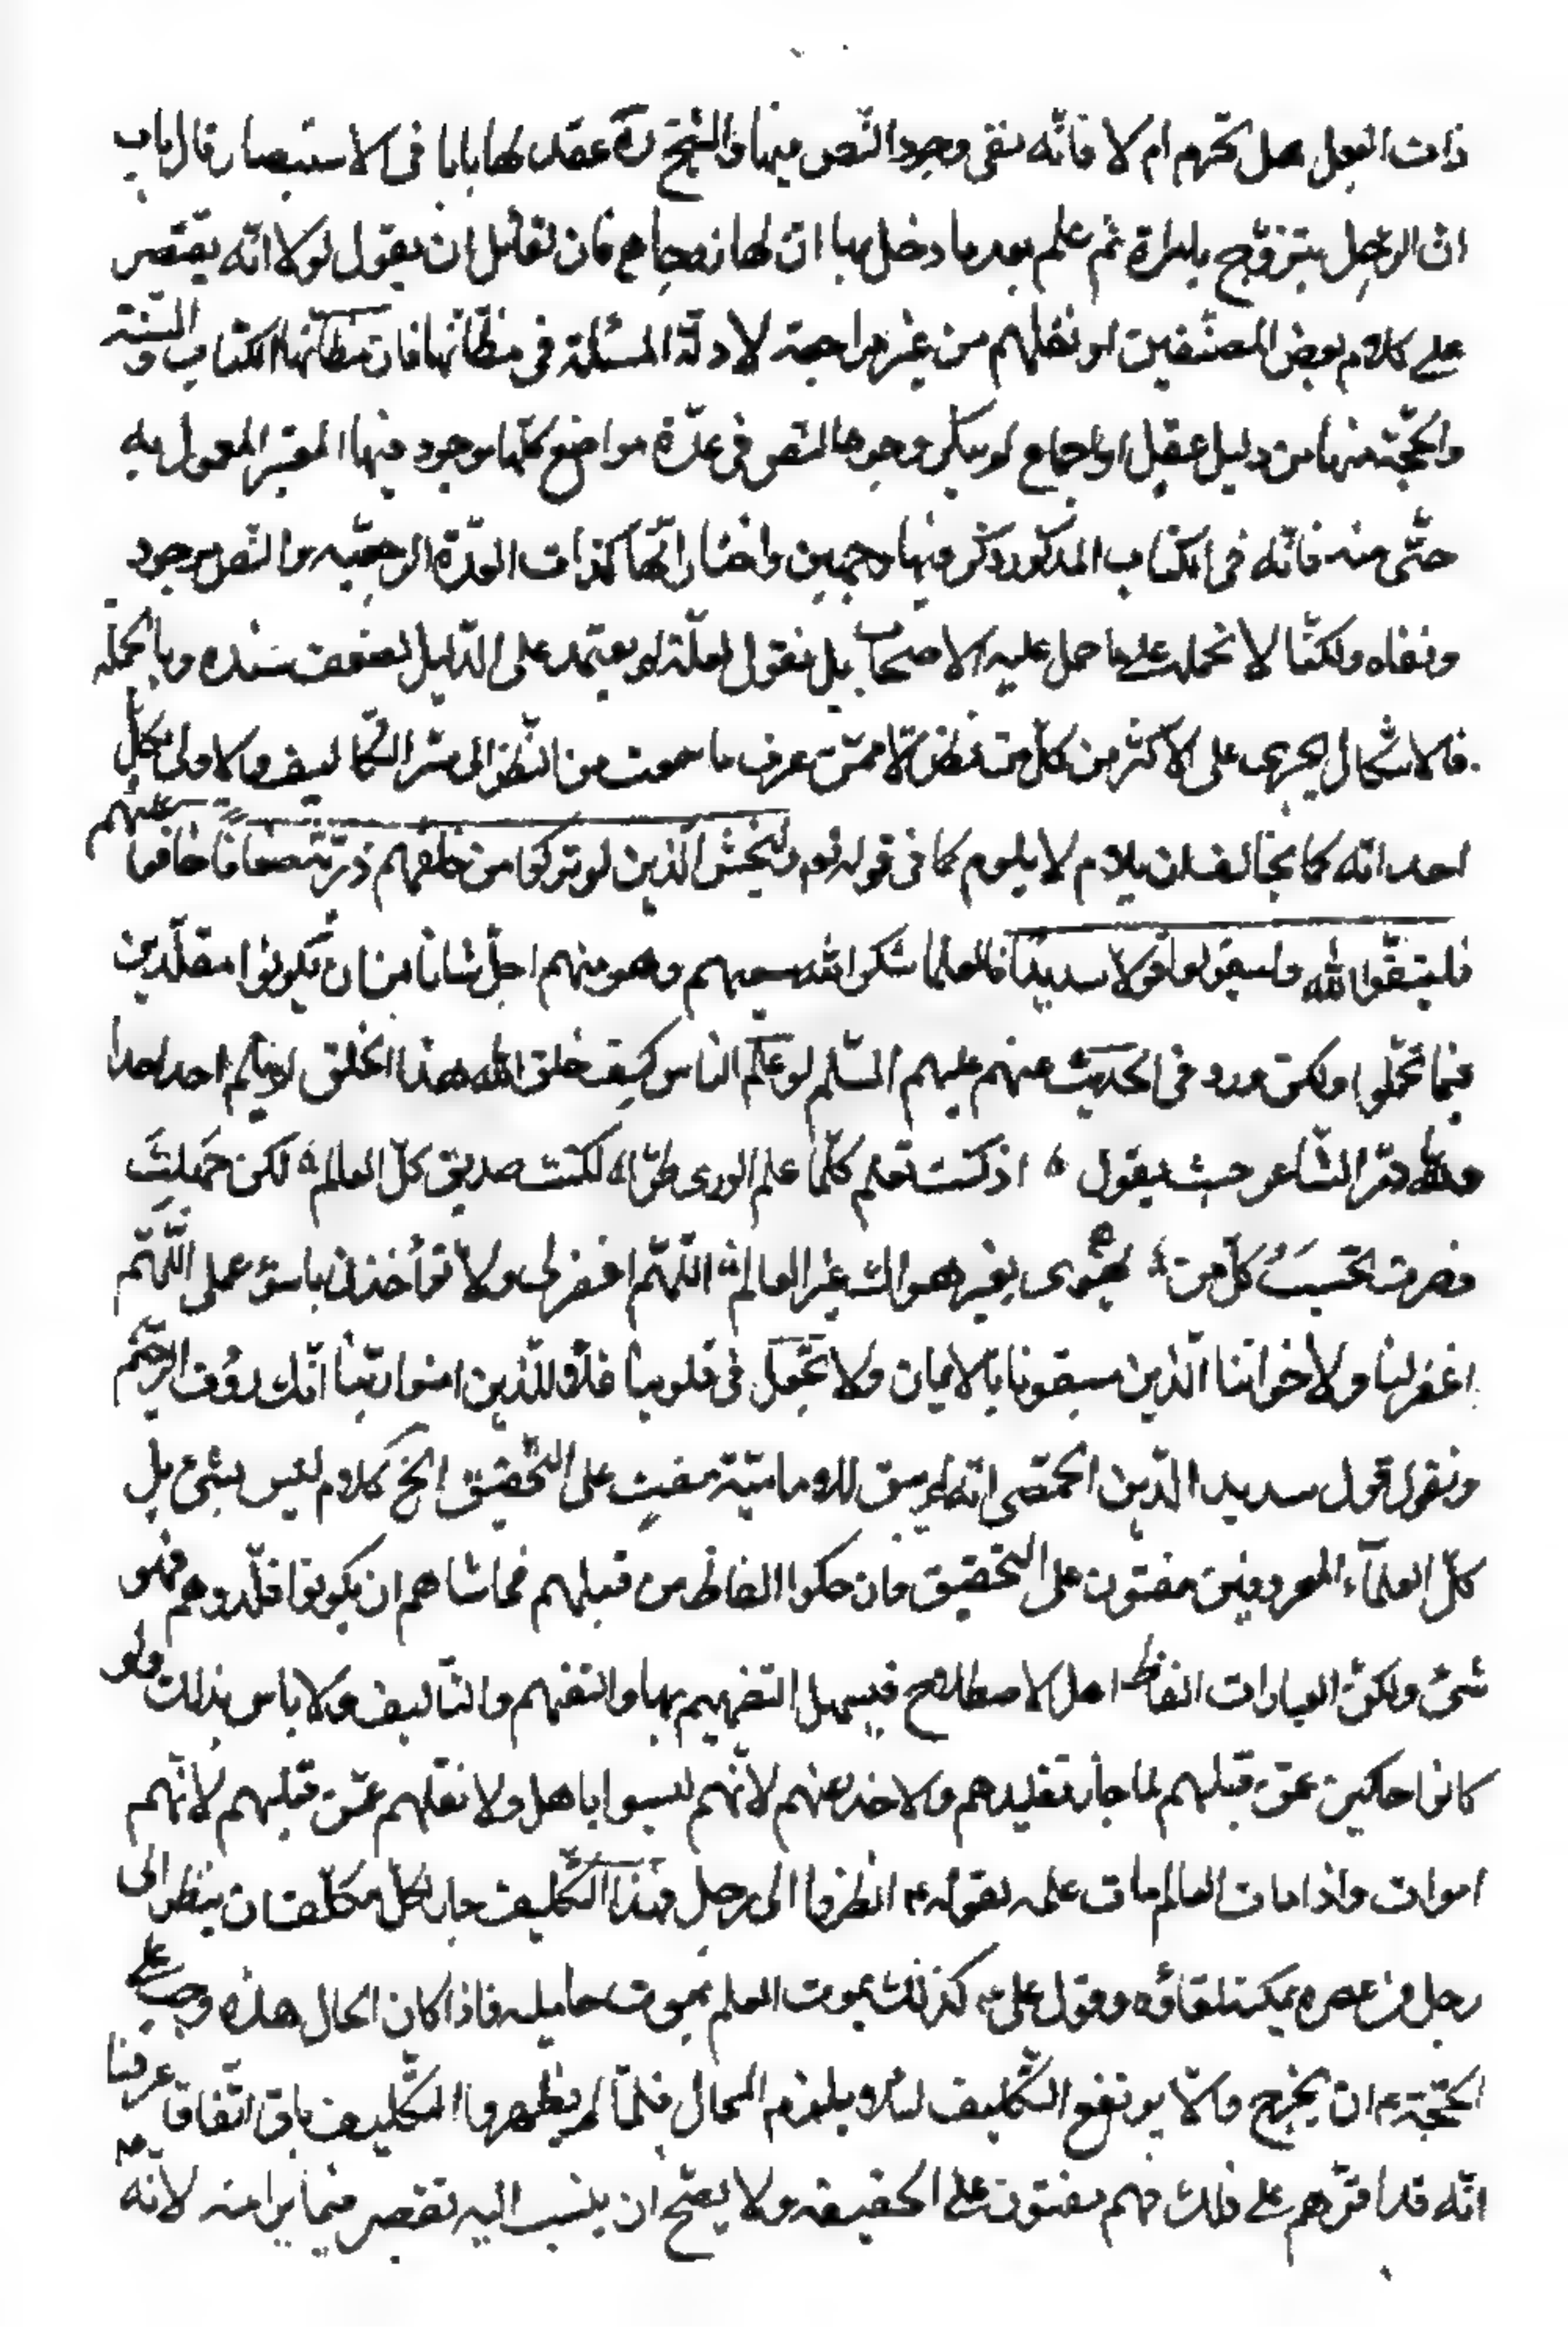 ذات البعل هل تحرم ام لا فانّه نفى وجود النّص فيها والشيخ ره عقد لها بابا فى الاستبصار قال باب
انّ الرّجل يتزوّج بامراة ثم علم بعد ما دخل بها انّ لها زوجا ع فان لقائل ان يقول لولا انّه يقتصر
على كلام بعض المصنّفين لو نقلهم من غير مراجعة لادلّة المسئلة فى مظانّها فانّ مظانّها الكتاب والسّنة
والحجّة منهما من دليل عقل او اجماع لم ينكر وجود النص فى عدّة مواضع كلّها موجود فيها المعتبر المعمول به
حتّى منه فانّه فى الكتاب المذكور ذكر فيها وجهين واختار انّها كذات العدّة الرجعيّه والنّص موجود
ونفاه ولكنّا لا نحمله على ما حمل عليه الاصحاب بل نقول لعلّه لم يعتمد على الدّليل لضعف سنده وبالجمله
فالاشكال يجرى على الاكثر من كلّ من نظر الّا ممّن عرف ما سمعت من النّظر الى سرّ التّكاليف والاولى بكلّ
احد انّه كما يخاف ان يلام لا يلوم كما فى قوله تع وليخش الّذين لو تركوا من خلفهم ذرّيّة ضعافا خافوا عليهم
فليتّقوا الله وليقولوا قولا سديدا فالعلما شكر الله سعيهم وهو منهم اجلّ شانا من ان يكونوا مقلّدين
فيما تحمّلوا ولكن ورد فى الحديث عنهم عليهم السّلم لو علم الناس كيف خلق الله هذا الخلق لم يلم احد احدا
ولله درّ الشّاعر حيث يقول ه اذ كنت تعلم كلّما علم الورى طرّا ه لكنت صديق كلّ العالم ه لكن جهلت
فصرت تحسب كلّ من ه يهوى بغير هواك غير العالم ه اللّهمّ اغفر لى ولا تؤاخذنى باسوء عملى اللّهمّ
اغفر لنا ولاخواننا الّذين سبقونا بالايمان ولا تجعل فى قلوبنا غلّا للّذين امنوا ربّنا انّك رؤف الرّحيم
ونقول قول سديد الدّين الحمّصى انّه لم يبق للاماميّة مفت على التّحقيق الخ كلام ليس بشىء بل
كلّ العلمآء المعروفين مفتون على التحقيق وان حكوا الفاظ من قبلهم فحاشاهم ان يكونوا قلّدوهم فهو
شىء ولكنّ العبارات الفاظ اهل الاصطلاح فيسهل التفهيم بها والتفهم والتّاليف ولا باس بذلك ولو
كانوا حاكين عمّن قبلهم لما جاز تقليدهم والاخذ عنهم لانّهم ليسوا باهل ولا نقلهم عمّن قبلهم لانّهم
اموات واذا مات العالم مات علمه بقوله ع انظروا الى رجل وهذا التّكليف جار لكلّ مكلّف ان ينظر الى
رجل فى عصره يمكنه لقاؤه وقول على ع كذلك يموت العلم بموت حامليه فاذا كان الحال هذه وجب على
الحجّة ع ان يخرج والّا يرتفع التّكليف لئلا يلزم المحال فلمّا لم يظهر والتّكليف باق اتّفاقا عرفنا
انّه قد اقرّهم على ذلك فهم مفتون على الحقيقه ولا يصّح ان ينسب اليه تقصير فيما يرا منه لانّه ع